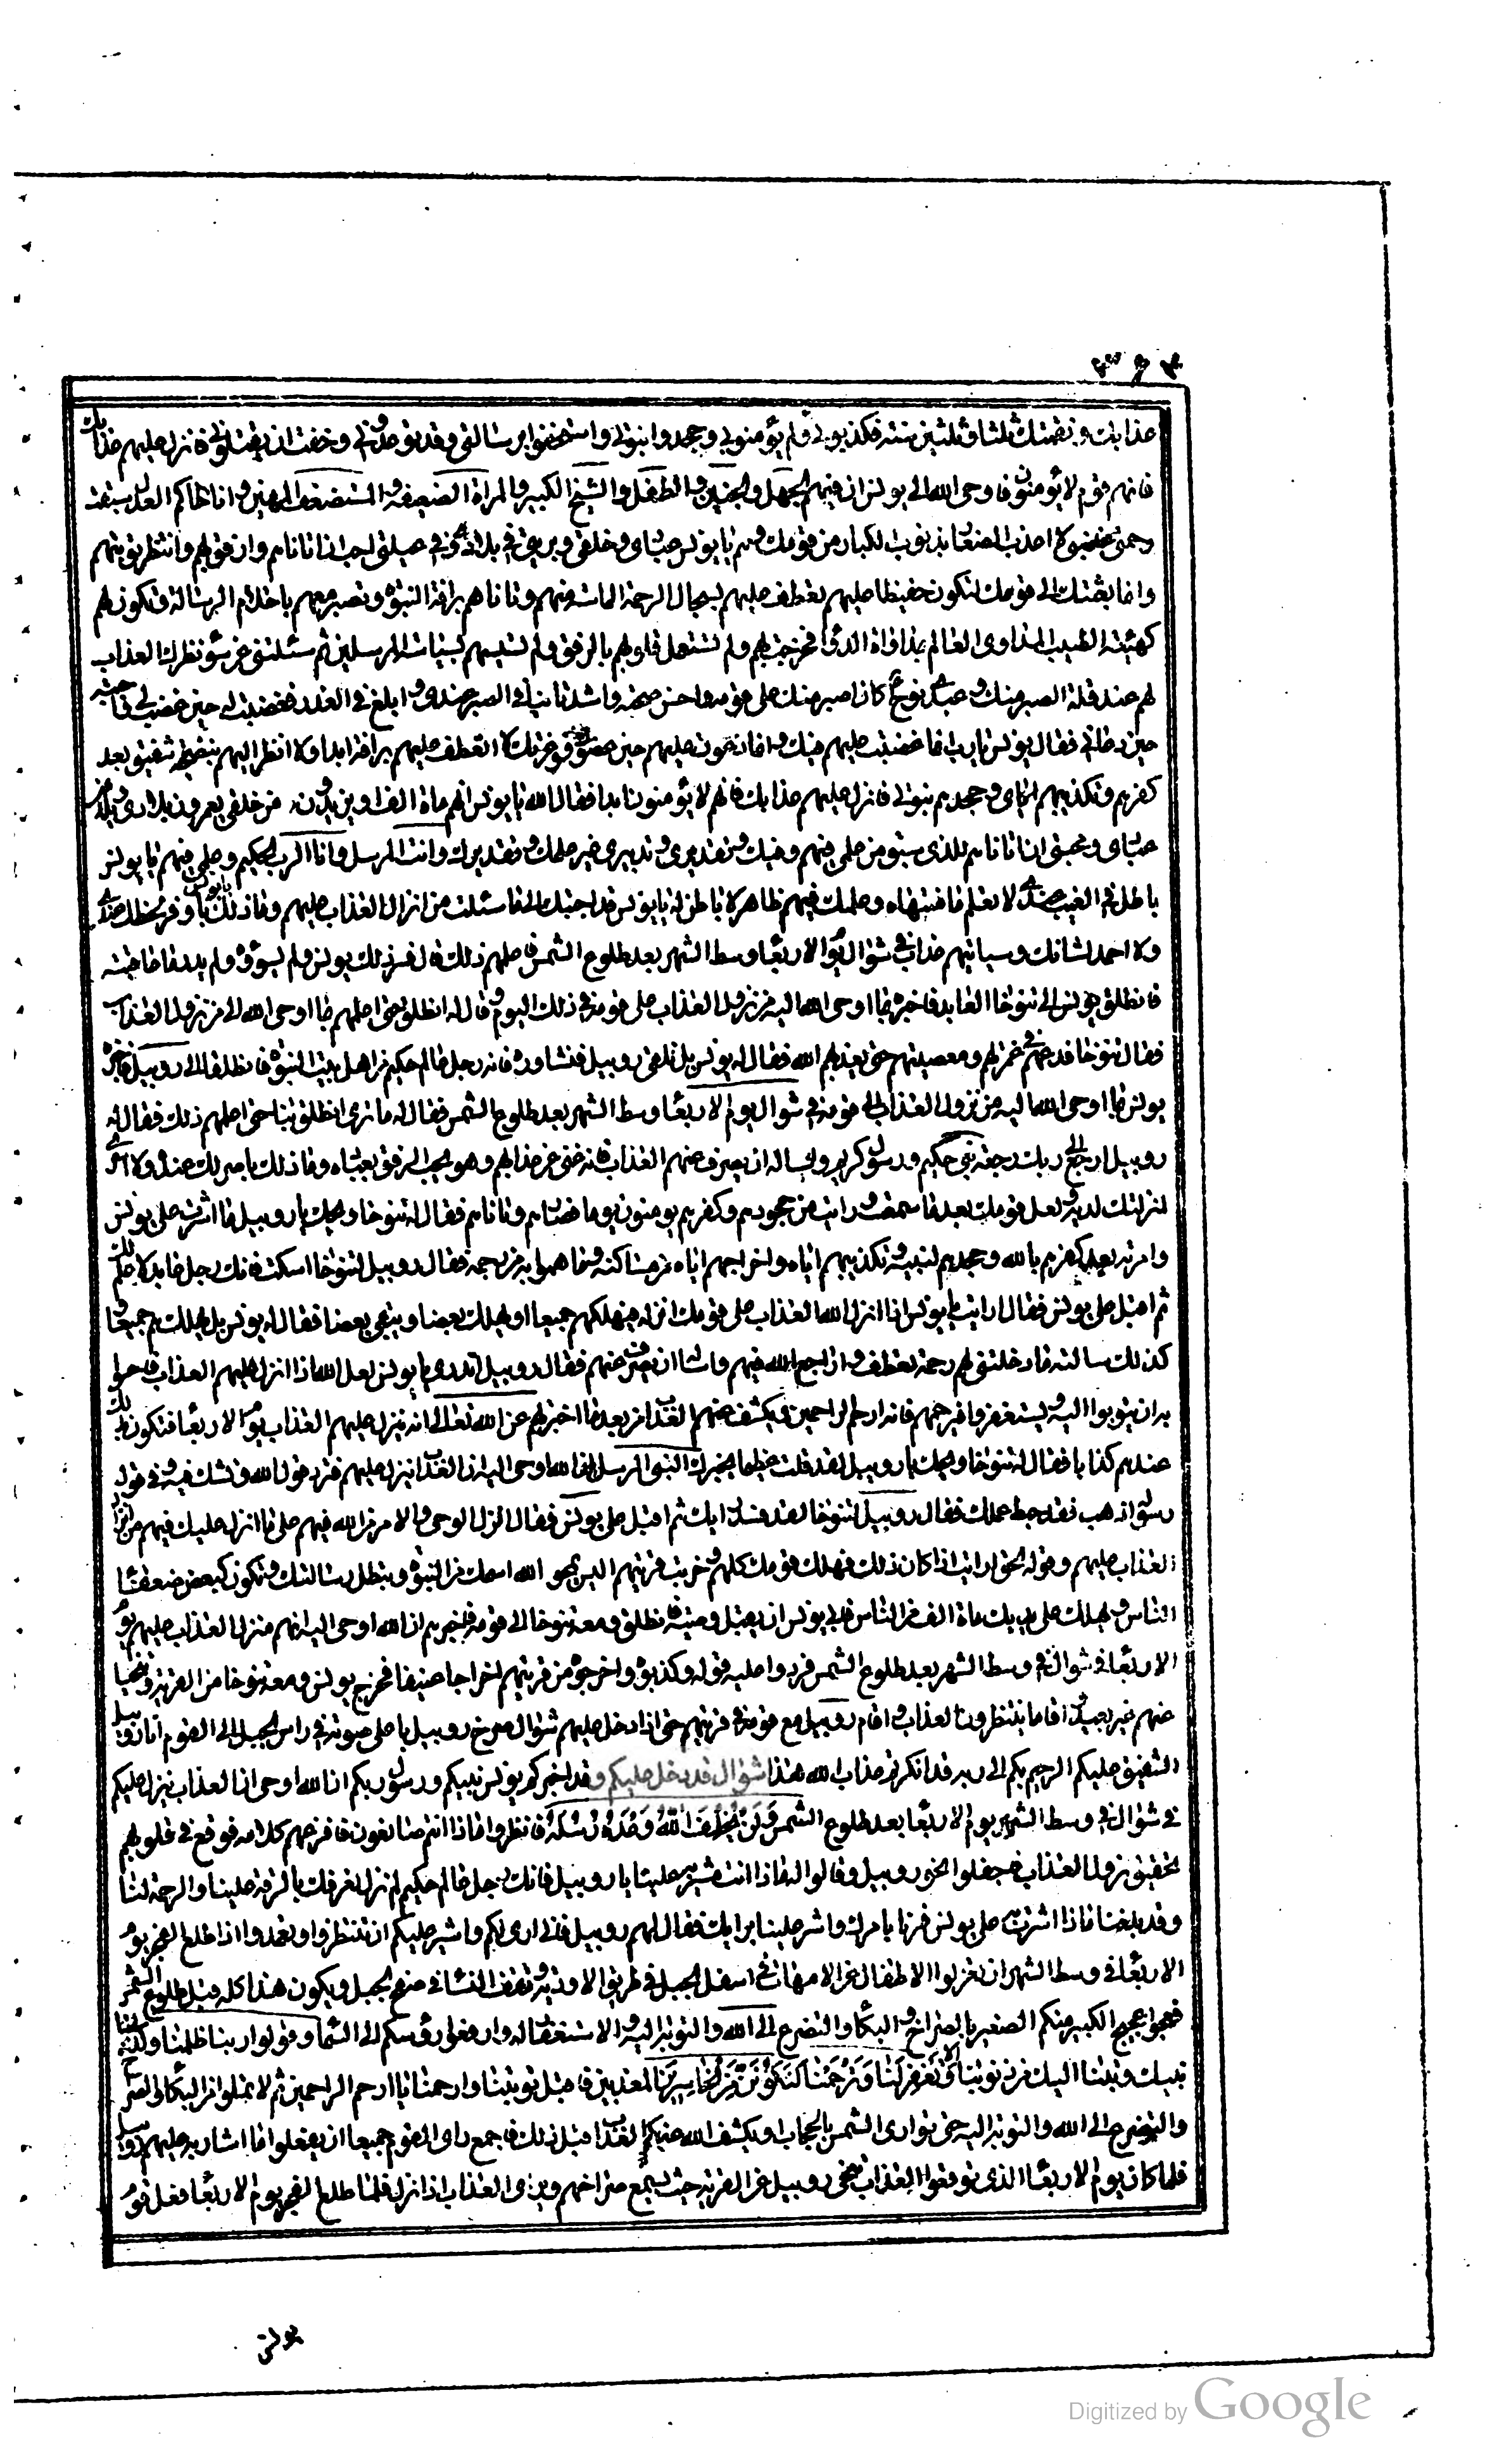 ٣٩٤
عذابك ونقمتك ثلثا وثلثين سنة فكذبوني ولم يؤمنوا بي وجحدوا نبوتي واستخفوا برسالتي وقد توعدوني وخفت ان يقتلوني فانزل عليهم عذابك
فانهم قوم لا يؤمنون فاوحى الله الى يونس ان فيهم الحمل والجنين والطفل والشيخ الكبير والمراة الضعيفة والمستضعف المهين وانا الحكم العدل سبقت
رحمتي غضبي لا اعذب الصغار بذنوب الكبار من قومك وهم يا يونس عبادي وخلقي وبريتي في بلادي وفي عيلتي احب ان اتاناهم وارفق بهم وانتظر توبتهم
وانما بعثتك الى قومك لتكون حفيظا عليهم تعطف عليهم بسجال الرحمة الماسة منهم وتاناهم برافة النبوة وتصبر معهم باحلام الرسالة وتكون لهم
كهيئة الطبيب المداوى العالم بمداواة الداء فخرجت بهم ولم تستعمل قلوبهم بالرفق ولم تسسهم بسياسة المرسلين ثم سئلتني عن سوء نظرك العذاب
لهم عند قلة الصبر منك وعبدي نوح كان اصبر منك على قومه واحسن صحبة واشد تانيا في الصبر عندي وابلغ في العذر فغضبت له حين غضب لي فاجبته
حين دعاني فقال يونس يا رب انما غضبت عليهم فيك وانما دعوت عليهم حين عصوك فوعزتك لا اتعطف عليهم برافة ابدا ولا انظر اليهم بنصيحة شفيق بعد
كفرهم وتكذيبهم اياي وجحدهم نبوتي فانزل عليهم عذابك فانهم لا يؤمنون ابدا فقال الله يا يونس انهم ماة الف او يزيدون من خلقي يعمرون بلادي ويلدون
عبادي ومحبتي ان اتاناهم للذي سبق من علمي فيهم وفيك وتقديري وتدبيري غير علمك وتقديرك وانت المرسل وانا الرب الحكيم وعلمي فيهم يا يونس
باطن في الغيب عندي لا تعلم ما منتهاه وعلمك فيهم ظاهر لا باطن له يا يونس قد اجبتك الى ما سئلت من انزال العذاب عليهم وما ذلك يا يونس باوفر لحظك عندي
ولا احمد لشانك وسياتيهم عذاب في شوال يوم الاربعا وسط الشهر بعد طلوع الشمس فاعلمهم ذلك قال فسر ذلك يونس ولم يسؤه ولم يدر ما عاقبته
فانطلق يونس الى تنوخا العابد فاخبره بما اوحى الله اليه من نزول العذاب على قومه في ذلك اليوم وقال له انطلق حتى اعلمهم بما اوحى الله الي من نزول العذاب
فقال تنوخا فدعهم في غمرتهم ومعصيتهم حتى يعذبهم الله فقال له يونس بل نلقى روبيل فنشاوره فانه رجل عالم حكيم من اهل بيت النبوة فانطلقا الى روبيل فاخبره
يونس بما اوحى الله اليه من نزول العذاب على قومه في شوال يوم الاربعا وسط الشهر بعد طلوع الشمس فقال له ما ترى انطلق بنا حتى اعلمهم ذلك فقال له
روبيل ارجع الى ربك رجعة نبي حكيم ورسول كريم واساله ان يصرف عنهم العذاب فانه غني عن عذابهم وهو يحب الرفق بعباده وما ذلك باضر لك عنده ولا اسوء
لمنزلتك لديه ولعل قومك بعد ما سمعت ورايت من جحودهم وكفرهم يؤمنون يوما فصابرهم وتاناهم فقال له تنوخا ويحك يا روبيل ما اشرت على يونس
وامرته بعد كفرهم بالله وجحدهم لنبيه وتكذيبهم اياه واخراجهم اياه من مساكنه وما هموا به من رجمه فقال روبيل لتنوخا اسكت فانك رجل عابد لا علم لك
ثم اقبل على يونس فقال ارايت يا يونس اذا انزل الله العذاب على قومك انزله فيهلكهم جميعا او يهلك بعضا ويبقى بعضا فقال له يونس بل يهلكهم جميعا
كذلك سالته ما دخلتني لهم رحمة تعطف فاراجع الله فيهم واسأله ان يصرف عنهم فقال روبيل اتدري يا يونس لعل الله اذا انزل عليهم العذاب فاحسوا
به ان يتوبوا اليه ويستغفروا فيرحمهم فانه ارحم الراحمين ويكشف عنهم العذاب من بعد ما اخبرتهم عن الله تعالى انه ينزل عليهم العذاب يوم الاربعا فتكون بذلك
عندهم كذابا فقال له تنوخا ويحك يا روبيل لقد قلت عظيما يخبرك النبي المرسل ان الله اوحى اليه ان العذاب ينزل عليهم فترد قول الله وتشك فيه وفي قول
رسوله اذهب فقد حبط عملك فقال روبيل لتنوخا لقد فسد رايك ثم اقبل على يونس فقال انزل الوحي والامر من الله فيهم على ما انزل عليك فيهم من انزال
العذاب عليهم وقوله الحق ارايت اذا كان ذلك فهلك قومك كلهم وخربت قريتهم اليس يمحو الله اسمك من النبوة وتبطل رسالتك وتكون كبعض ضعفاء
الناس ويهلك على يديك ماة الف من الناس فابى يونس ان يقبل وصيته فانطلق ومعه تنوخا الى قومه فاخبرهم ان الله اوحى اليه انه منزل العذاب عليهم يوم
الاربعا في شوال في وسط الشهر بعد طلوع الشمس فردوا عليه قوله وكذبوه واخرجوه من قريتهم اخراجا عنيفا فخرج يونس ومعه تنوخا من القرية وتنحيا
عنهم غير بعيد واقاما ينتظرون العذاب واقام روبيل مع قومه في قريتهم حتى اذا دخل عليهم شوال صرخ روبيل باعلى صوته في راس الجبل الى القوم انا روبيل
الشفيق عليكم الرحيم بكم الى ربه قد انكرتم عذاب الله هذا شوال قد دخل عليكم وقد اخبركم يونس نبيكم ورسول ربكم ان الله اوحى ان العذاب ينزل عليكم
في شوال في وسط الشهر يوم الاربعا بعد طلوع الشمس وَلَنْ يُخْلِفَ اللهُ وَعْدَهُ رُسُلَهُ فانظروا ماذا انتم صانعون فافزعهم كلامه فوقع في قلوبهم
تحقيق نزول العذاب فجفلوا نحو روبيل وقالوا له ماذا انت مشير به علينا يا روبيل فانك رجل عالم حكيم لم نزل نعرفك بالرقة علينا والرحمة لنا
وقد بلغنا ماذا اشرت به على يونس فمرنا بامرك واشر علينا برايك فقال لهم روبيل فاني ارى لكم واشير عليكم ان تنتظروا وتعمدوا اذا طلع الفجر يوم
الاربعا في وسط الشهر ان تعزلوا الاطفال عن الامهات في اسفل الجبل في طريق الاودية وتقف النساء في سفح الجبل ويكون هذا كله قبل طلوع الشمس
فعجوا عجيج الكبير منكم الصغير بالصراخ والبكاء والتضرع الى الله والتوبة اليه والاستغفار له وارفعوا رؤسكم الى السماء وقولوا ربنا ظلمنا وكذبنا
نبيك وتبنا اليك من ذنوبنا وَاِنْ لَمْ تَغْفِرْ لَنَا وَتَرْحَمْنَا لَنَكُونَنَّ مِنَ الْخَاسِرِينَ المعذبين فاقبل توبتنا وارحمنا يا ارحم الراحمين ثم لا تملوا من البكاء والصراخ
والتضرع الى الله والتوبة اليه حتى توارى الشمس بالحجاب او يكشف الله عنكم العذاب قبل ذلك فاجمع راى القوم جميعا ان يفعلوا ما اشار به عليهم روبيل
فلما كان يوم الاربعا الذي توقعوا العذاب تنحى روبيل عن القرية حيث يسمع صراخهم ويرى العذاب اذا نزل فلما طلع الفجر يوم الاربعا فعل قوم
يونس
Digitized by Google